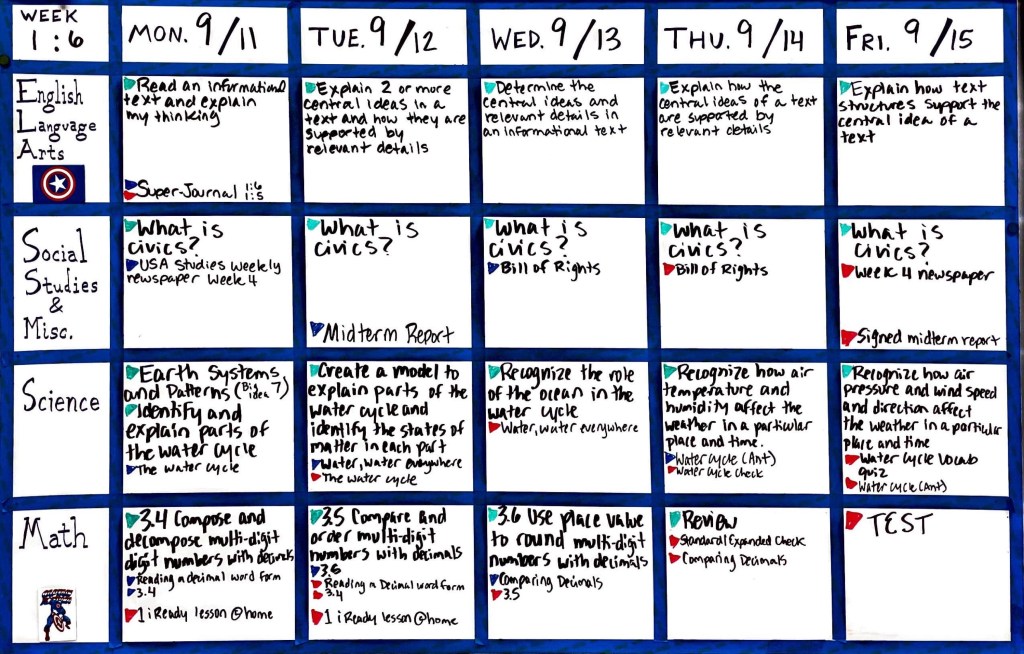 WEEK
1:6
MON. 9/11
TUE. 9/12
WED. 9/13
THU. 9/14
FRI. 9/15
English
Language
Arts
Read an informational
text and explain
my thinking
Super-Journal 1:6
1:5
Explain 2 or more
central ideas in a
text and how they are
supported by
relevant details
Determine the
central ideas and
relevant details in
an informational text
Explain how the
central ideas of a text
are supported by
relevant details
Explain how text
structures support the
central idea of a
text
Social
Studies
&
Misc.
What is
civics?
USA Studies Weekly
newspaper Week 4
What is
civics?
Midterm Report
What is
civics?
Bill of Rights
What is
civics?
Bill of Rights
What is
civics?
Week 4 newspaper
Signed midterm report
Science
Earth Systems
and Patterns (Big
idea 7)
Identify and
explain parts of
the water cycle
The water cycle
Create a model to
explain parts of the
water cycle and
identify the states of
matter in each part
Water, water everywhere
The water cycle
Recognize the role
of the ocean in the
water cycle
Water, water everywhere
Recognize how air
temperature and
humidity affect the
weather in a particular
place and time.
Water cycle (Ant)
Water cycle check
Recognize how air
pressure and wind speed
and direction affect
the weather in a particular
place and time
Water cycle vocab
quiz
Water cycle (Ant)
Math
3.4 Compose and
decompose multi-digit
digit numbers with decimals
Reading a decimal word form
3.4
1 iReady lesson @home
3.5 Compare and
order multi-digit
numbers with decimals
3.6
Reading a Decimal word form
3.4
1 iReady lesson @home
3.6 Use place value
to round multi-digit
numbers with decimals
Comparing Decimals
3.5
Review
Standard Expanded Check
Comparing Decimals
TEST